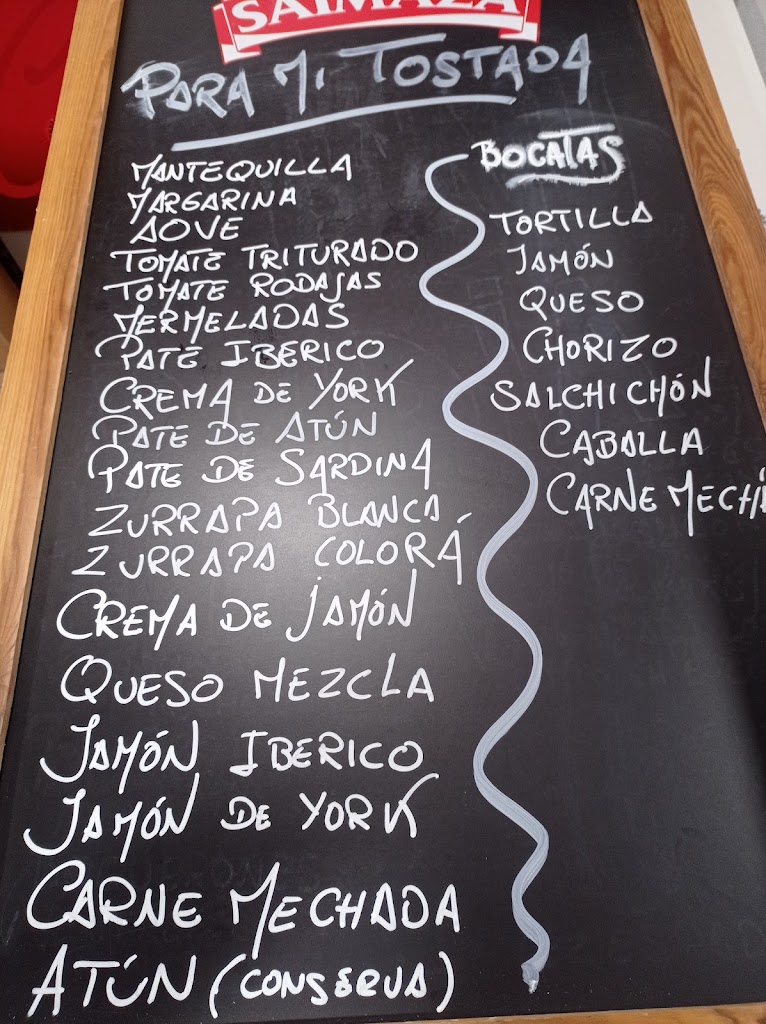 SAIMAZA
PARA MI TOSTADA
MANTEQUILLA
MARGARINA
AOVE
TOMATE TRITURADO
TOMATE RODAJAS
MERMELADAS
PATE IBERICO
CREMA DE YORK
PATE DE ATÚN
PATE DE SARDINA
ZURRAPA BLANCA
ZURRAPA COLORÁ
CREMA DE JAMÓN
QUESO MEZCLA
JAMÓN IBERICO
JAMÓN DE YORK
CARNE MECHADA
ATÚN (CONSERVA)
BOCATAS
TORTILLA
JAMÓN
QUESO
CHORIZO
SALCHICHÓN
CABALLA
CARNE MECHA